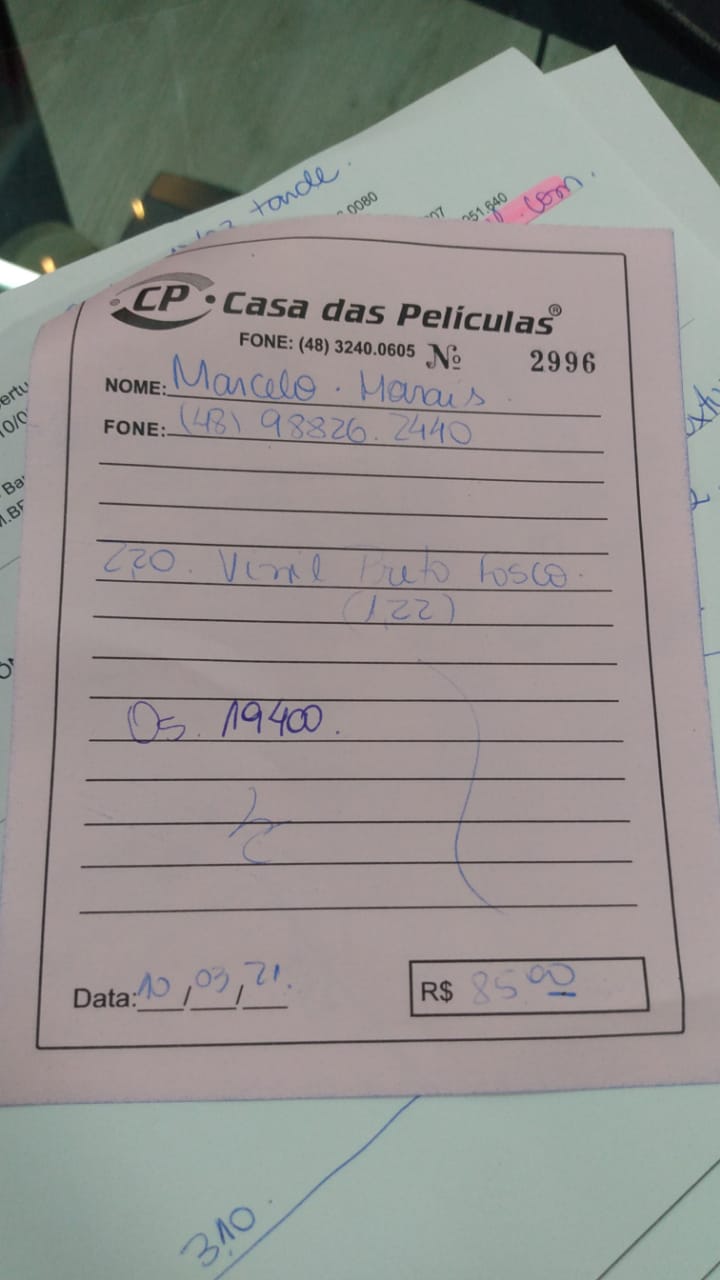 tande.
0080
07
051.640
com.
CP • Casa das Películas®
FONE: (48) 3240.0605 Nº 2996
NOME: Marcelo. Morais.
FONE: (48) 98826.2440
2,20. Vinil Preto Fosco.
(1,22)
Os. 19400.
Data: 10/03/21.
R$ 85,00
3,10.